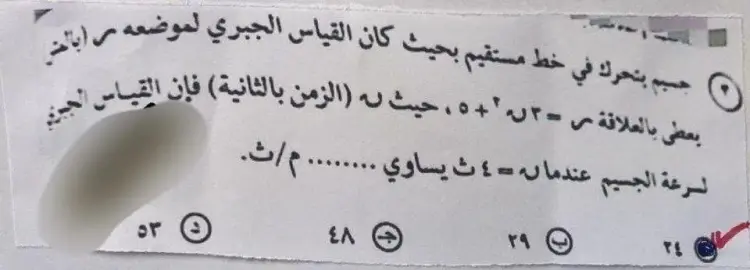 ٢ جسيم يتحرك في خط مستقيم بحيث كان القياس الجبري لموضعه س (بالمتر
يعطى بالعلاقة س = ٣ن٢ + ٥ ، حيث ن (الزمن بالثانية) فإن القياس الجبري
لسرعة الجسيم عندما ن = ٤ ث يساوي ........ م/ث.
٢٤ ب ٢٩ ج ٤٨ د ٥٣